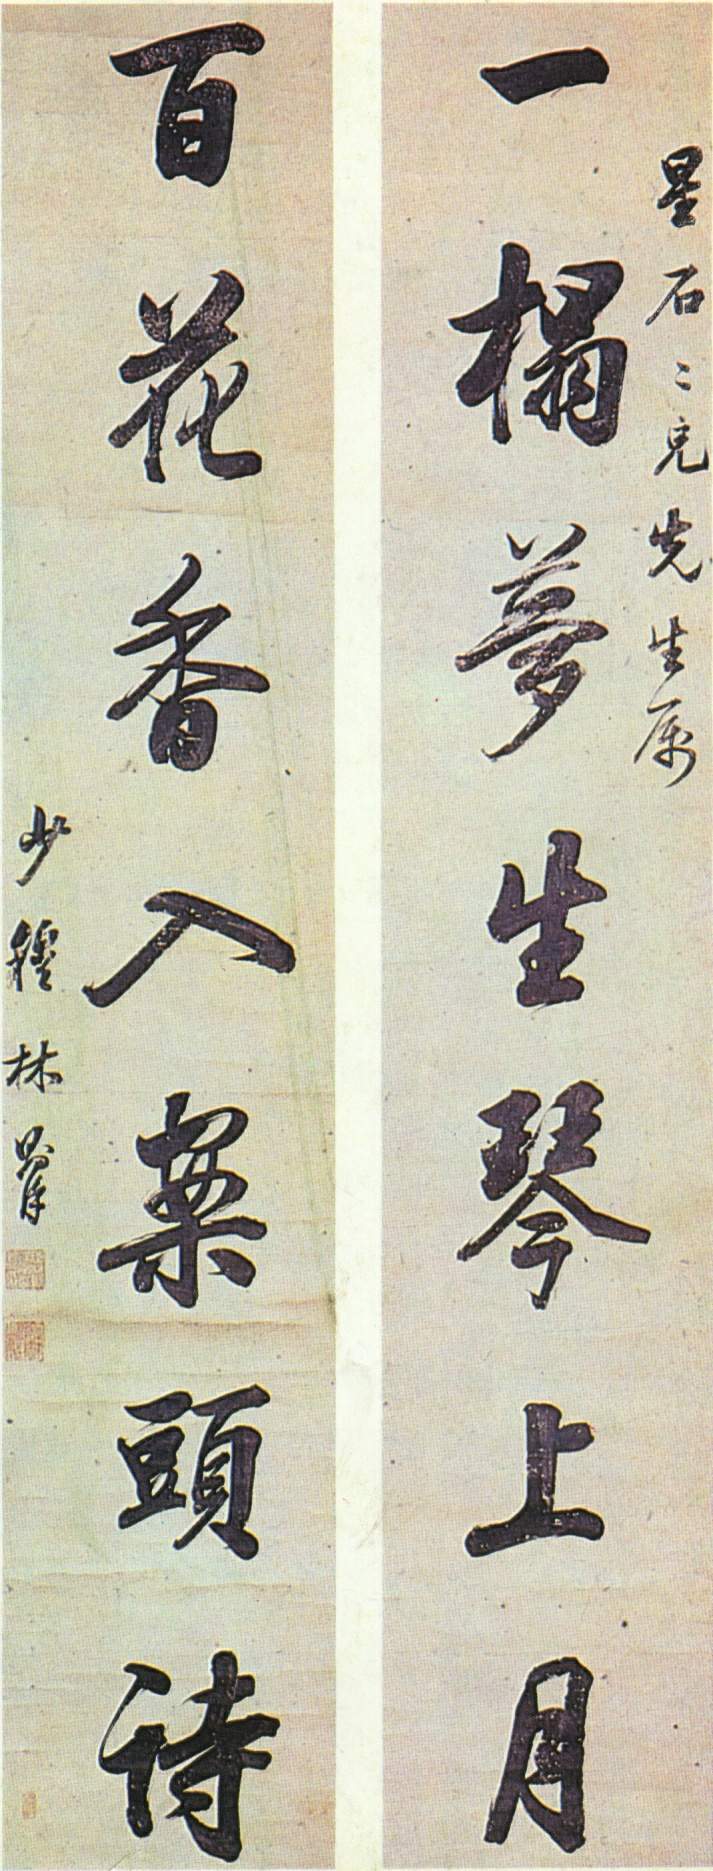 星石二兄先生属
一榻夢生琴上月
百花香入案頭诗
少穆林則徐